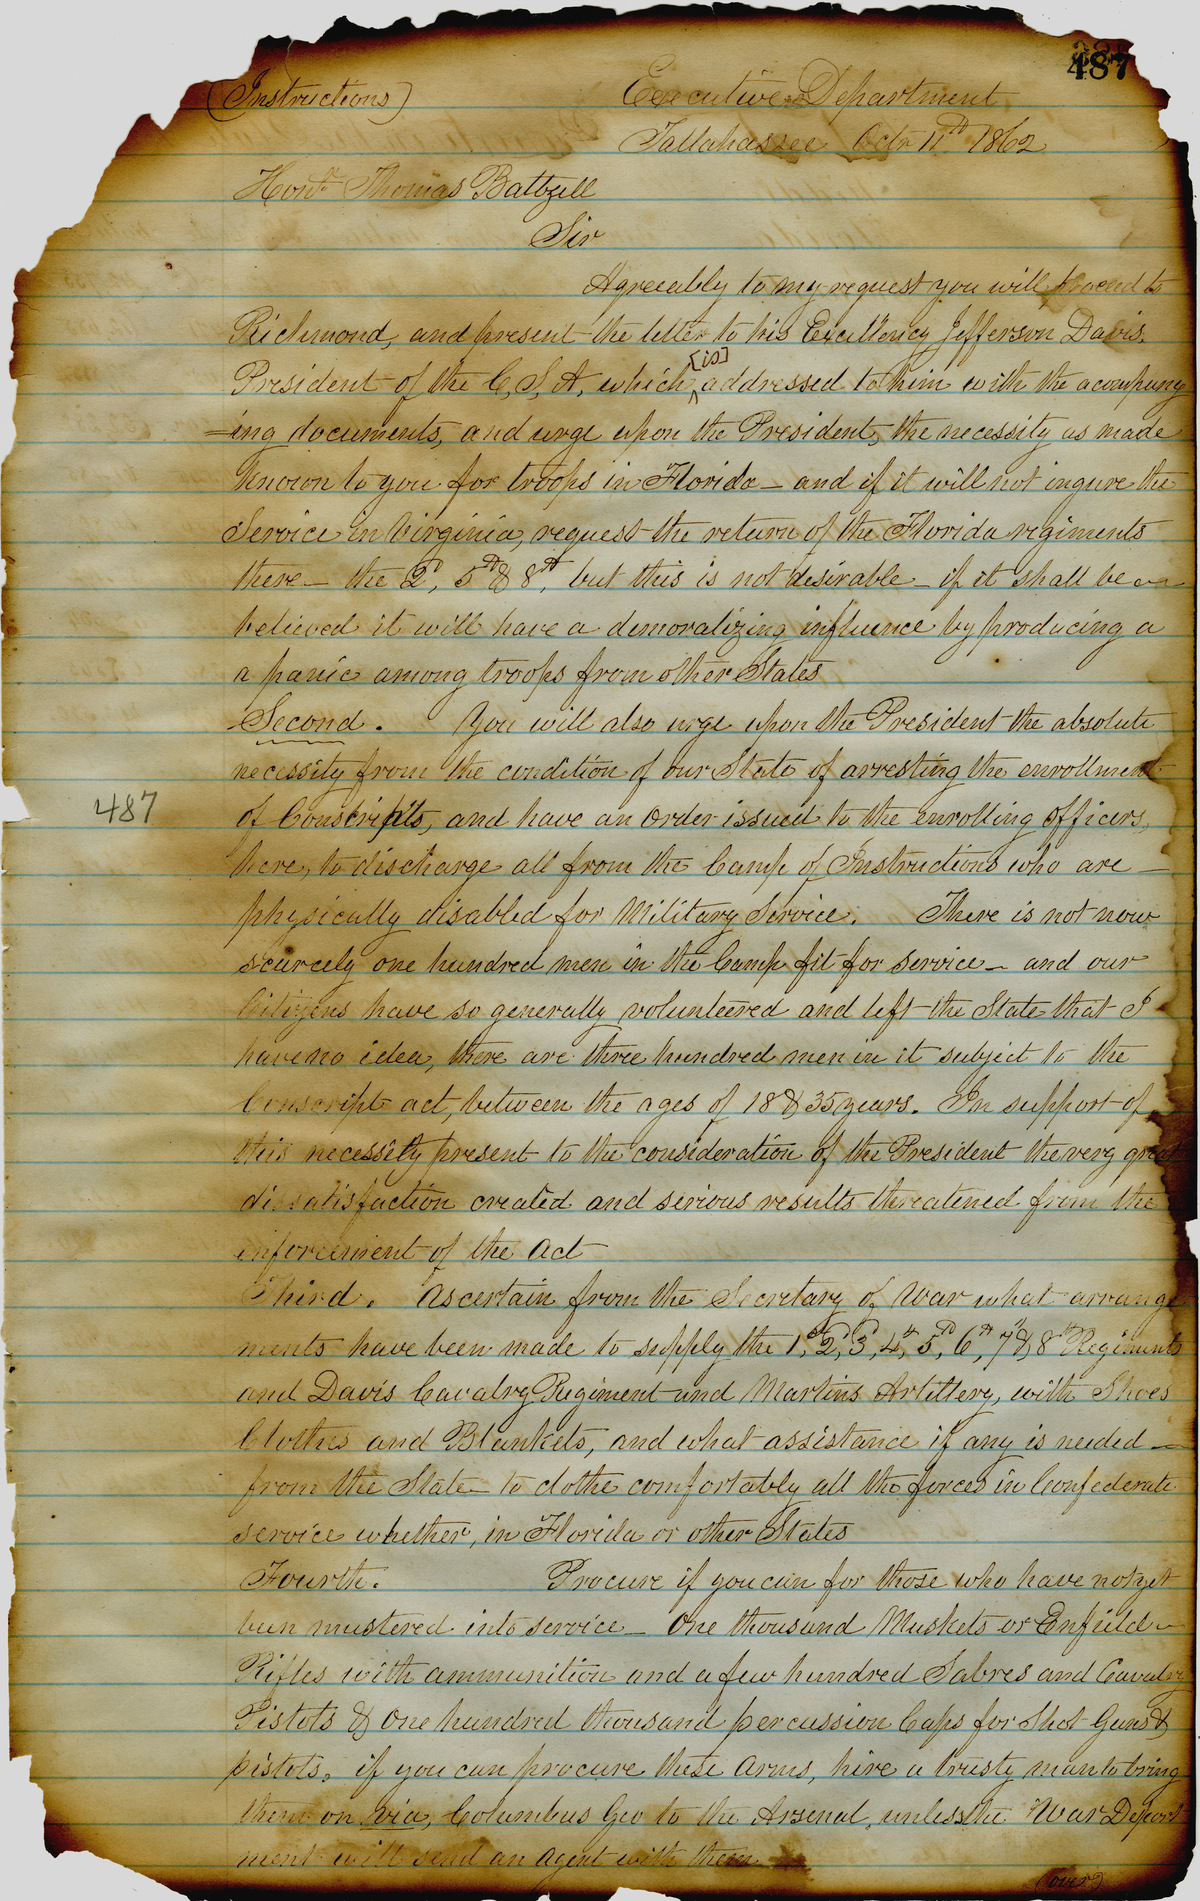 487
(Instructions)
Executive Department
Tallahassee Octr 11th 1862
Honl. Thomas Baltzell
Sir
Agreeably to my request you will proceed to
Richmond, and present the letter to his Excellency Jefferson Davis,
President of the C, S, A, which [is] addressed to him with the acompany
=ing documents, and urge upon the President, the necessity as made
known to you for troops in Florida – and if it will not ingure the
Service in Virginia, request the return of the Florida regiments
there – the 2d, 5th & 8th, but this is not desirable – if it shall be –
believed it will have a demoralizing influence by producing a
a panic among troops from other States
Second. You will also urge upon the President the absolute
necessity from the condition of our State of arresting the enrollment
487
of Conscripts, and have an order issued to the enrolling officers,
here, to discharge all from the Camp of Instructions who are –
physically disabled for Military Service. There is not now
scarcely one hundred men in the Camp fit for service – and our
Citizens have so generally volunteered and left the State that I
have no idea, there are three hundred men in it subject to the
Conscript act, between the ages of 18 & 35 years. In support of
this necessity present to the consideration of the President the very great
dissatisfaction created and serious results threatened from the
enforcement of the act
Third. Ascertain from the Secretary of War what arrange
ments have been made to supply the 1st, 2d, 3d, 4th, 5th, 6th, 7th & 8th Regiments
and Davis Cavalry Regiment and Martins Artillery, with Shoes
Clothes and Blankets, and what assistance if any is needed –
from the State – to clothe comfortably all the forces in Confederate
service whether, in Florida or other States
Fourth. Procure if you can for those who have not yet
been mustered into service – One thousand Muskets or Enfield –
Rifles with ammunition and a few hundred Sabres and Cavalry
Pistols & One hundred thousand percussion Caps for Shot Guns &
pistols, if you can procure these arms, hire a trusty man to bring
them on via, Columbus Geo to the Arsenal, unless the War Depart
ment will send an agent with them
(over)